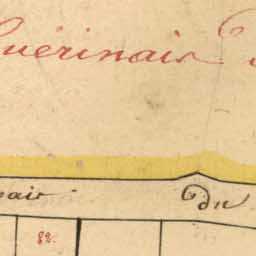 uérinais
nais du
82.